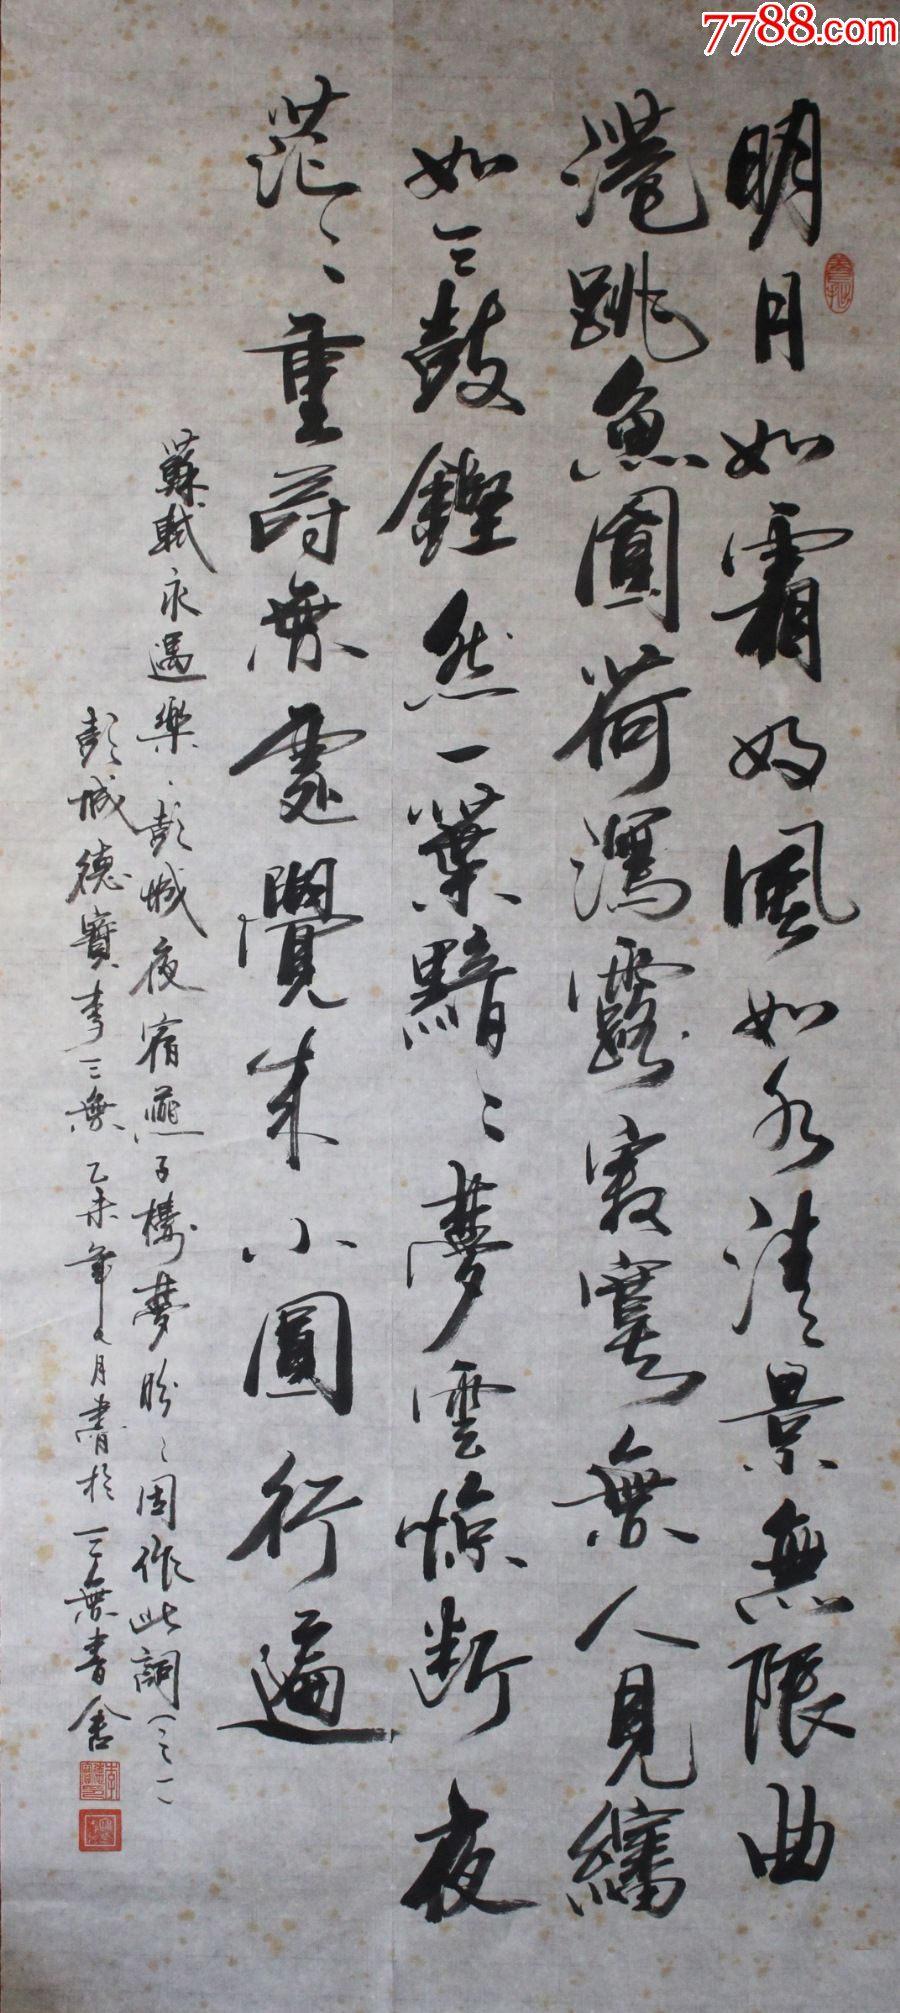 7788.com
明月如霜好風如水清景無限曲
港跳魚圓荷瀉露寂寞無人見
如三鼓鏗然一葉黯〻夢雲惊斷夜
茫〻重尋無處覺來小圓行遍
蘇軾永遇樂、彭城夜宿燕子樓夢盼〻因作此詞(之一
彭城德寶李三無乙未年月書於三無書舍